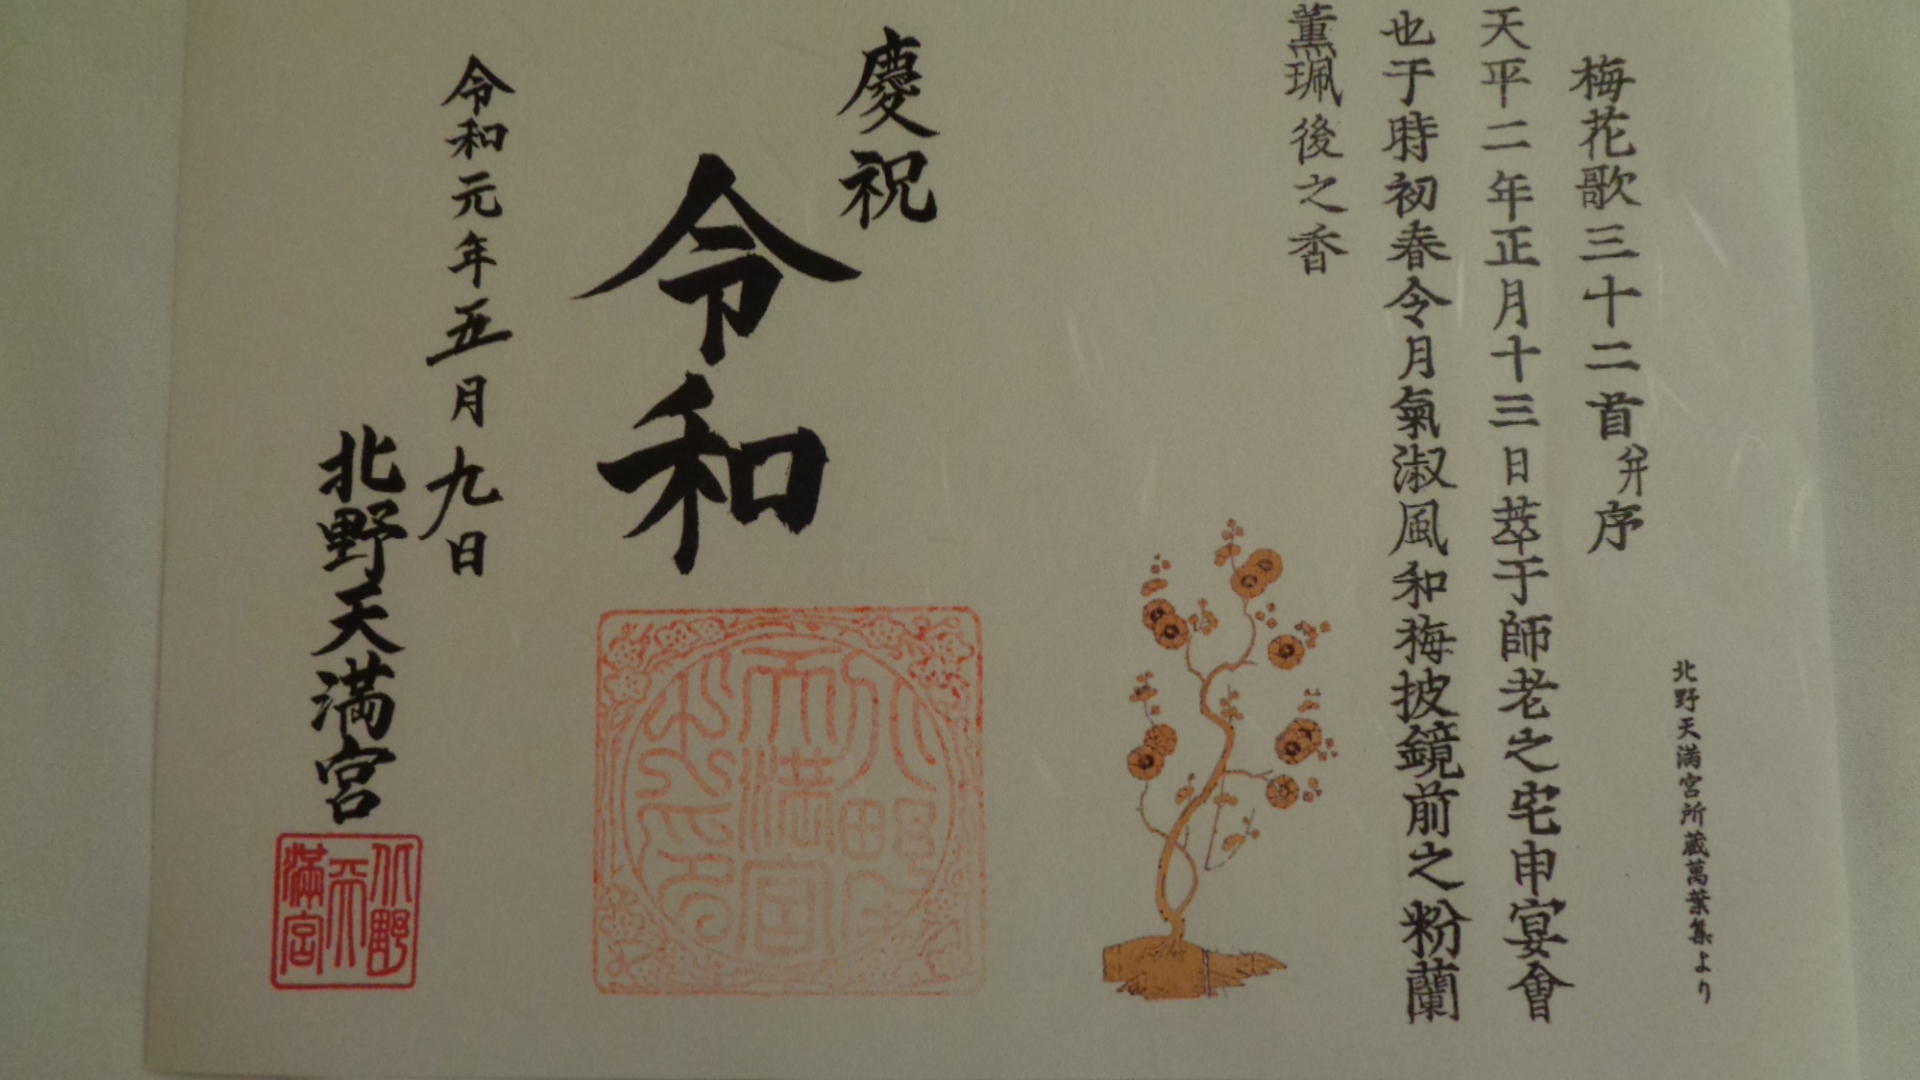 梅花歌三十二首并序
天平二年正月十三日萃于師老之宅申宴會
也于時初春令月氣淑風和梅披鏡前之粉蘭
薫珮後之香
北野天満宮所蔵萬葉集より
慶祝
令和
令和元年五月九日
北野天満宮
北野
天満宮
北野
天
満宮